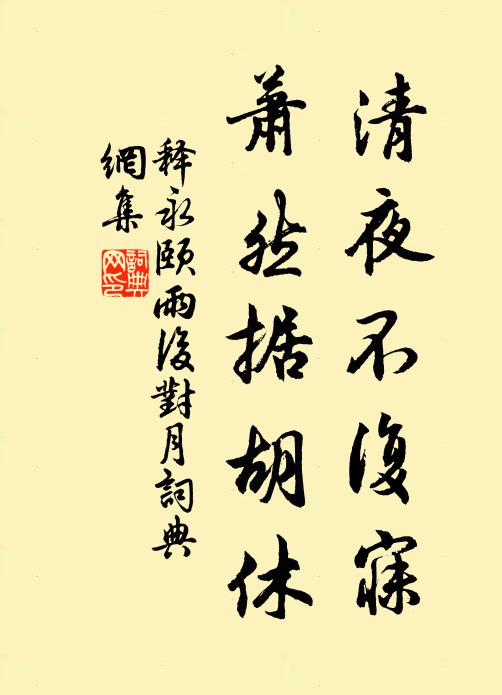 清夜不復寐
蕭然据胡休
释永頤雨後對月詞典
網集
詞典
网印